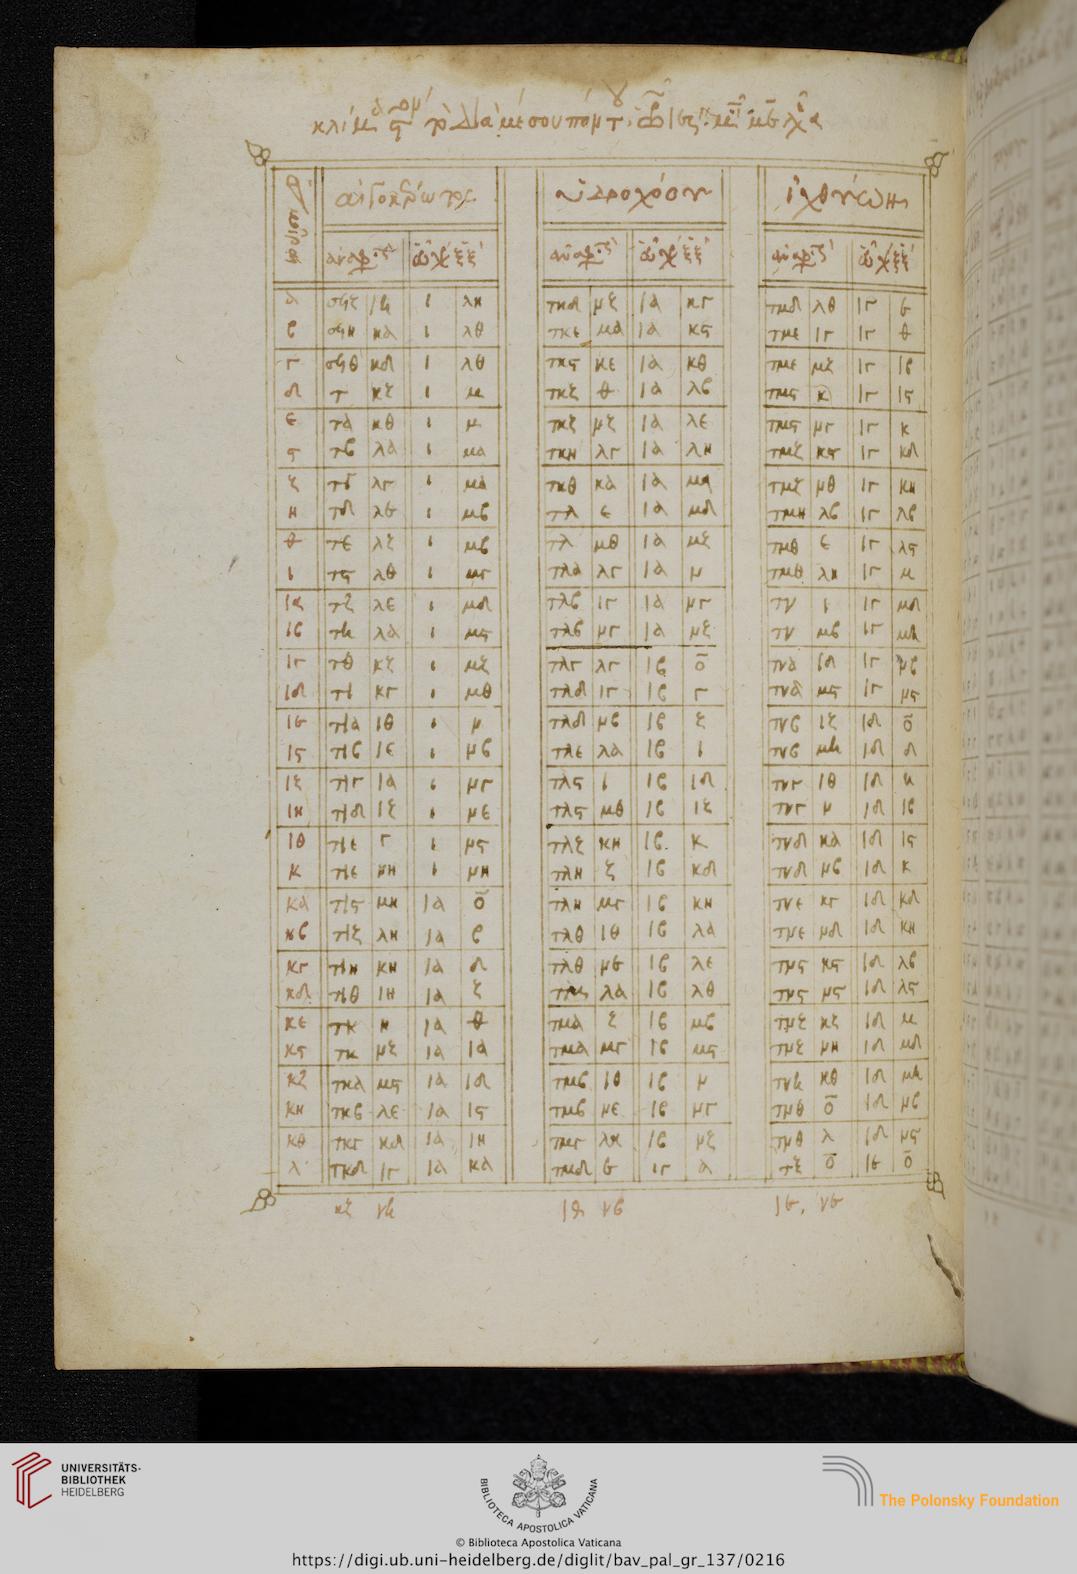 διὰ μέσου πόντ
αἰγοκέρωτος ὑδροχόου ἰχθύων
α σϟζ ιη ι λη τκδ νζ ια κγ τμδ λθ ιγ ε
β σϟη κα ι λθ τκε μα ια κϛ τμε ιγ ιγ θ
γ σϟθ κδ ι λθ τκϛ κε ια κθ τμε μζ ιγ ιβ
δ τ κζ ι μ τκζ θ ια λβ τμϛ κ ιγ ιϛ
ε τα κθ ι μ τκζ νζ ια λε τμϛ νγ ιγ κ
ϛ τβ λα ι μα τκη λγ ια λη τμζ κϛ ιγ κδ
ζ τγ λγ ι μα τκθ κα ια μα τμζ νθ ιγ κη
η τδ λε ι μβ τλ ε ια μδ τμη λβ ιγ λβ
θ τε λζ ι μβ τλ μθ ια μζ τμθ ε ιγ λϛ
ι τϛ λθ ι μγ τλα λγ ια ν τμθ λη ιγ μ
ια τζ λε ι μδ τλβ ιγ ια νγ τν ι ιγ μδ
ιβ τη λα ι μϛ τλβ νγ ια νζ τν μβ ιγ μη
ιγ τθ κζ ι μζ τλγ λγ ιβ ο τνα ιδ ιγ νβ
ιδ τι κγ ι μθ τλδ ιγ ιβ γ τνα μϛ ιγ νϛ
ιε τια ιθ ι ν τλδ νβ ιβ ζ τνβ ιζ ιδ ο
ιϛ τιβ ιε ι νβ τλε λα ιβ ι τνβ μη ιδ δ
ιζ τιγ ια ι νγ τλϛ ι ιβ ιδ τνγ ιθ ιδ η
ιη τιδ ιζ ι νε τλϛ μθ ιβ ιζ τνγ ν ιδ ιβ
ιθ τιε γ ι νϛ τλζ κη ιβ κ τνδ κα ιδ ιϛ
κ τιε νη ι νη τλη ζ ιβ κδ τνδ νβ ιδ κ
κα τιϛ μη ια ο τλη μγ ιβ κη τνε κγ ιδ κδ
κβ τιζ λη ια β τλθ ιθ ιβ λα τνε νδ ιδ κη
κγ τιη κη ια δ τλθ νε ιβ λε τνϛ κϛ ιδ λβ
κδ τιθ ιη ια ζ λα ιβ λθ τνϛ νϛ ιδ λϛ
κε τκ η ια θ τμα ζ ιβ μβ τνζ κζ ιδ μ
κϛ τκ νζ ια ια τμα μγ ιβ μϛ τνζ νη ιδ μδ
κζ τκα μϛ ια ιδ τμβ ιθ ιβ ν τνη κθ ιδ μη
κη τκβ λε ια ιϛ τμβ νε ιβ νγ τνθ ο ιδ νβ
κθ τκγ κδ ια ιη τμγ λ ιβ νζ τνθ λ ιδ νϛ
λ τκδ ιγ ια κα τμδ ε ιγ α τξ ο ιε ο
κζ νη ιθ νβ ιε νε
UNIVERSITÄTS-
BIBLIOTHEK
HEIDELBERG
BIBLIOTECA APOSTOLICA VATICANA
The Polonsky Foundation
© Biblioteca Apostolica Vaticana
https://digi.ub.uni-heidelberg.de/diglit/bav_pal_gr_137/0216